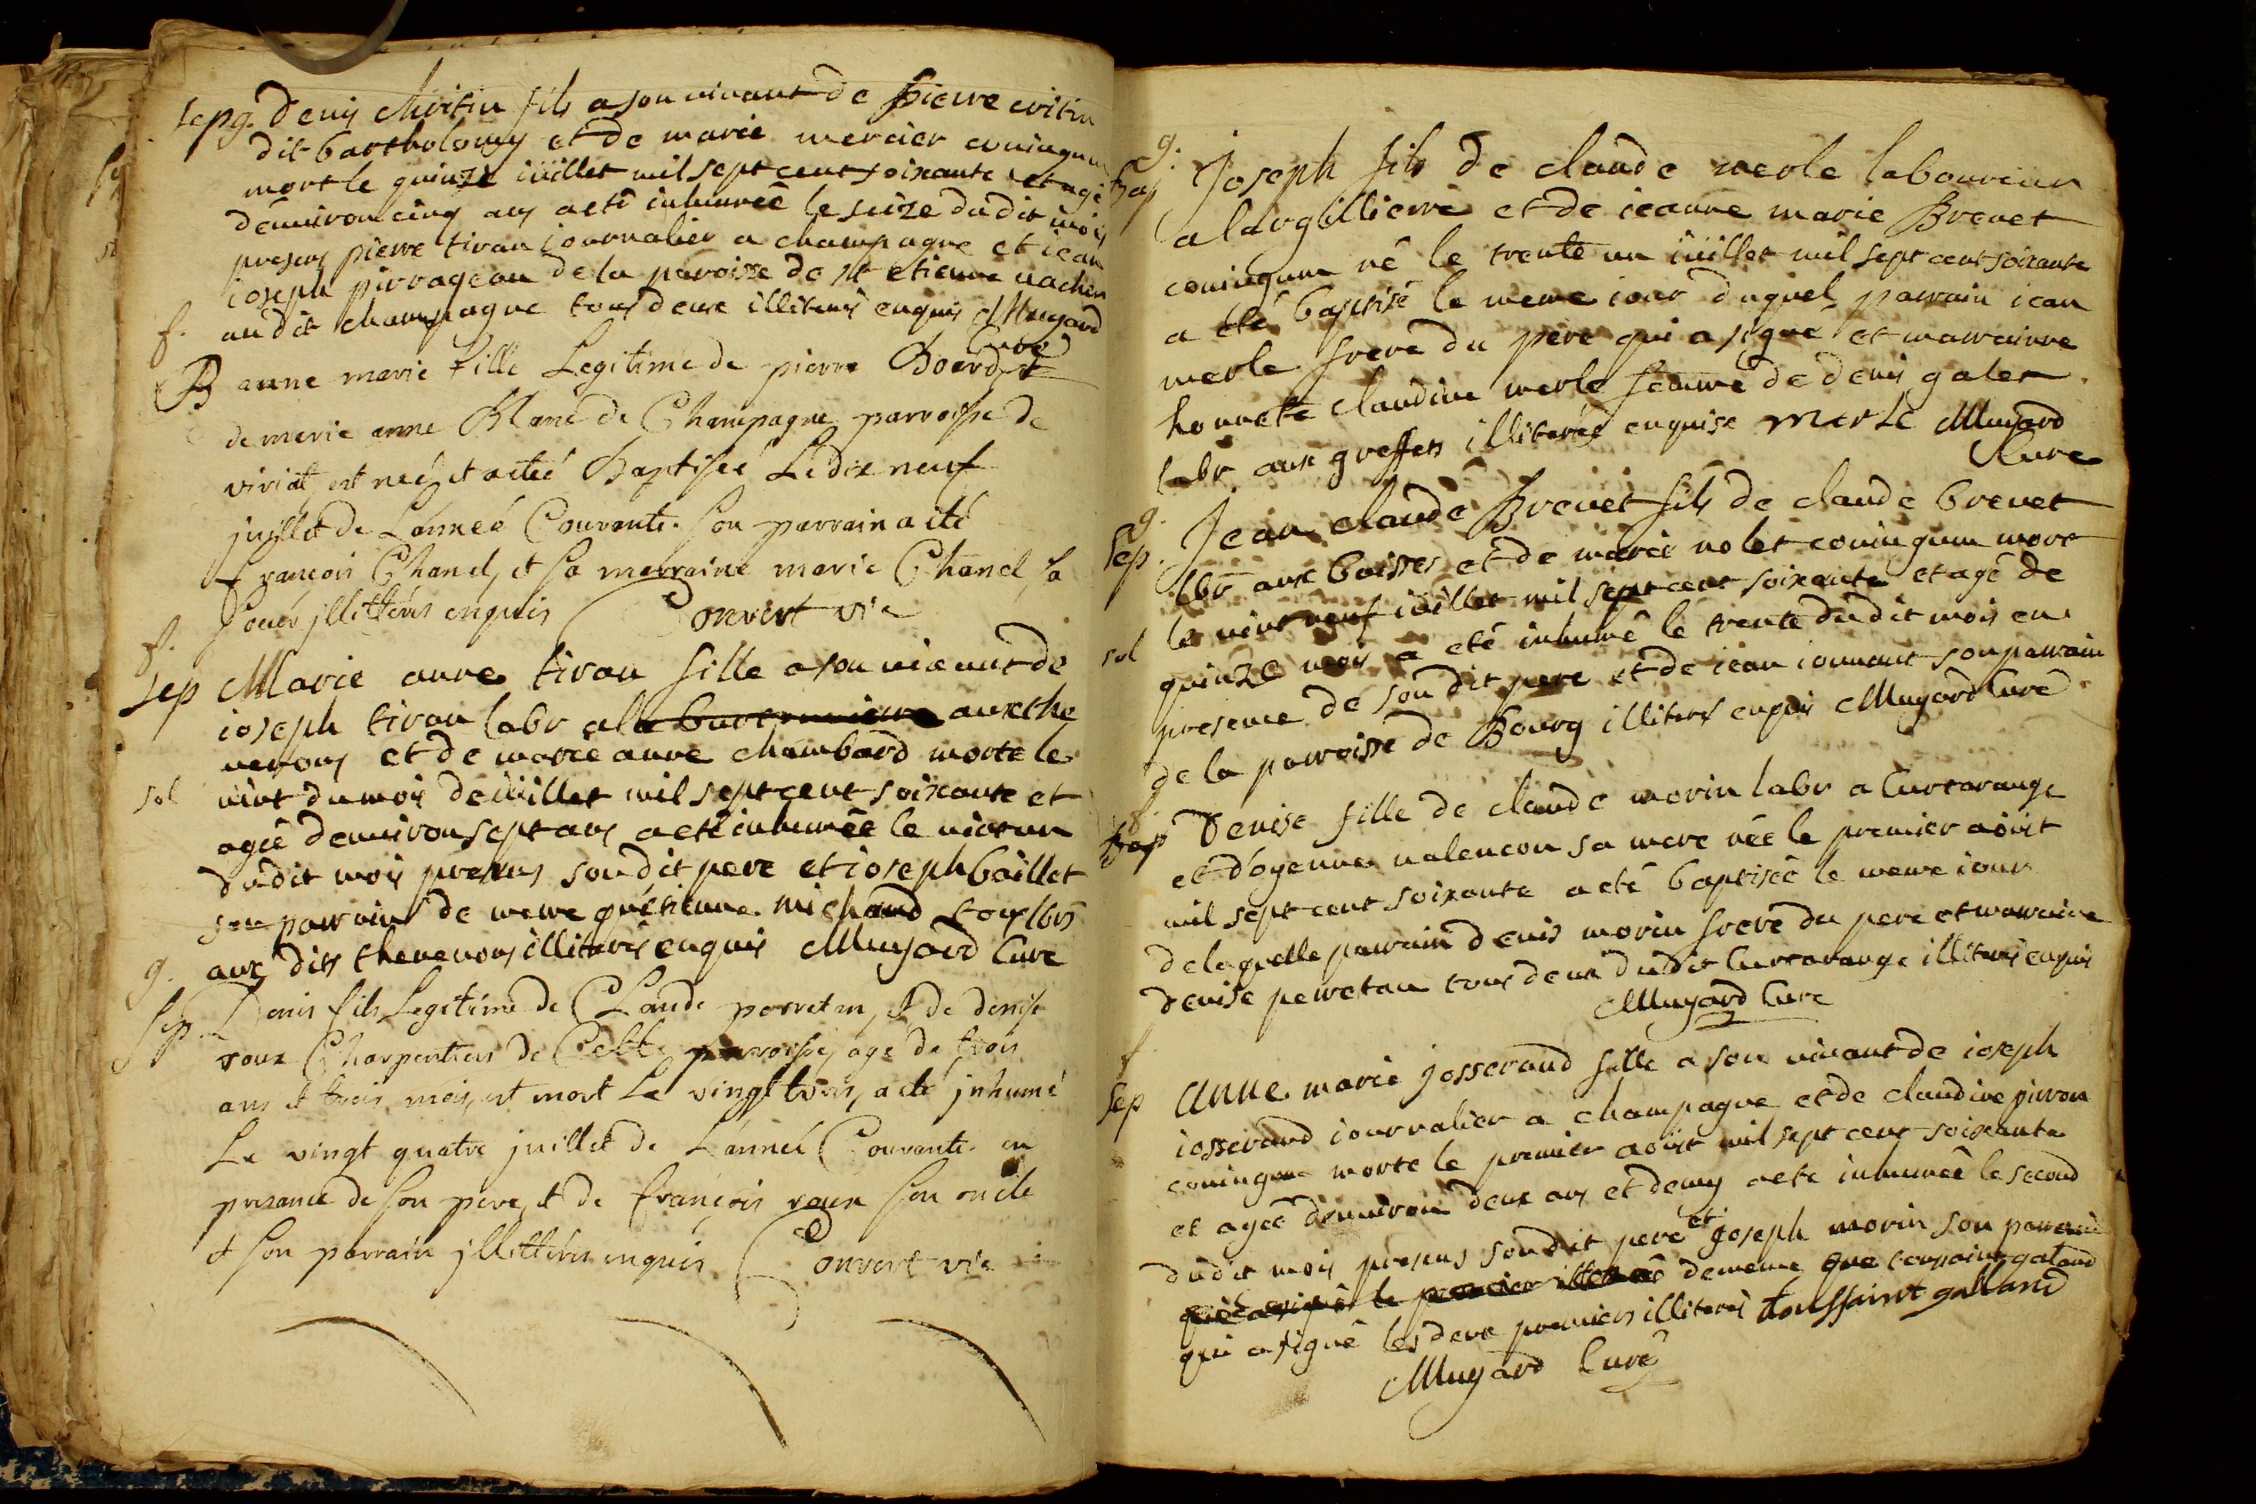 sep g. denis Chritin fils a son vivant de pierre critin
dit bartholomy et de marie mercier coniugum
mort le quinze iüillet mil sept cent soixante et agé
d'environ cinq ans a eté inhumée le seize du dit mois
presens pierre tiran journalier a champagne et jean
joseph pirrageau de la paroisse de st etienne vacher
au dit champagne tous deux illiterés enquis Mugard
Curé
f.
B anne marie fille Legitime de pierre Boerd et
de marie anne Blanc de Champagne parroisse de
viriat, est neé et a eteé Baptiseé Le dix neuf
juillet de L'anneé Courante. Son parrain a eté
françois Chanel, et Sa marraine marie Chanel, Sa
Soeur jllitterés enquis Convert vic
f.
sep Marie anne tiran fille a son vivant de
joseph tiran labr a la aux the
venons et de marie anne chambard morte le
sol vint du mois de iüillet mil sept cent soixante et
agée d'environ sept ans a eté inhumée le vint un
du dit mois presens son dit pere et joseph baillet
son parrain de meme qu'etienne michaud tous lbrs
aux dits thevenons illiterés enquis Mugard Curé
g.
Sep. Denis fils Legitime de Claude perretan, et de denise
roux Charpentiers de Cette parroisse, agé de trois
ans et trois mois, est mort Le vingt trois, a eté jnhumé
Le vingt quatre juillet de L'anneé Courante. en
presance de Son pere, et de françois roux Son oncle
et Son parrain jllitterés enquis Convert vic
g.
bap Joseph fils de claude merle laboureur
a l'argillierre et de jeanne marie Brevet
coniugum né le trente un iüillet mil sept cent soixante
a été baptisé le meme iour duquel parrain jean
merle frere du pere qui a signé et marrainne
honnete claudine merle femme de denis galet
labr aux greffets illiterée enquise merle Mugard
Curé
g.
Sep. Jean claude Brevet fils de claude brevet
lbr aux baisses et de marie nolet coniugum mort
le vint neuf iüillet mil sept cent soixante et agé de
sol quinze mois a eté inhumé le trente du dit mois en
presence de son dit pere et de jean jonnant son parrain
de la parroisse de Bourg illiterés enquis Mugard Curé
f.
bap Denise fille de claude morin labr a Curtarange
et d'ogenne valencon sa mere née le premier aôüt
mil sept cent soixante a eté baptisée le meme iour
de laquelle parrain denis morin frere du pere et marraine
denise perretan tous deux du dit Curtarange illiterés enquis
Mugard Curé
f
Sep Anne marie josserand fille a son vivant de joseph
josserand journalier a champagne et de claudine pirron
coniugum morte le premier aôüt mil sept cent soixante
et agée d'environ deux ans et demy a eté inhumée le second
du dit mois presens son dit pere et joseph morin son parrain
de meme que toussaint galand
qui a signé les deux premiers illiterés toussaint galland
Mugard Curé